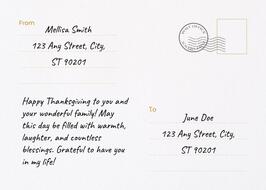 From
Mellisa Smith
123 Any Street, City,
ST 90201
Happy Thanksgiving to you and
your wonderful family! May
this day be filled with warmth,
laughter, and countless
blessings. Grateful to have you
in my life!
To
June Doe
123 Any Street, City,
ST 90201